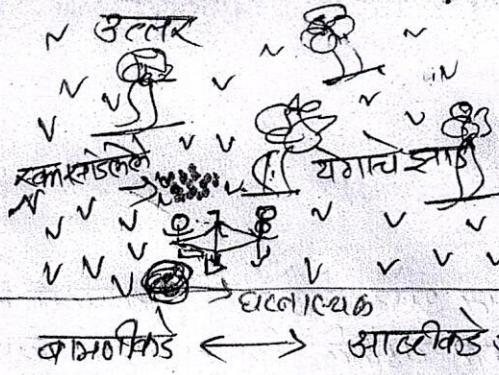 उत्तर
रक्त सांडलेले
येनाचे झाड
घटनास्थळ
बामणीकडे ↔ आष्टीकडे